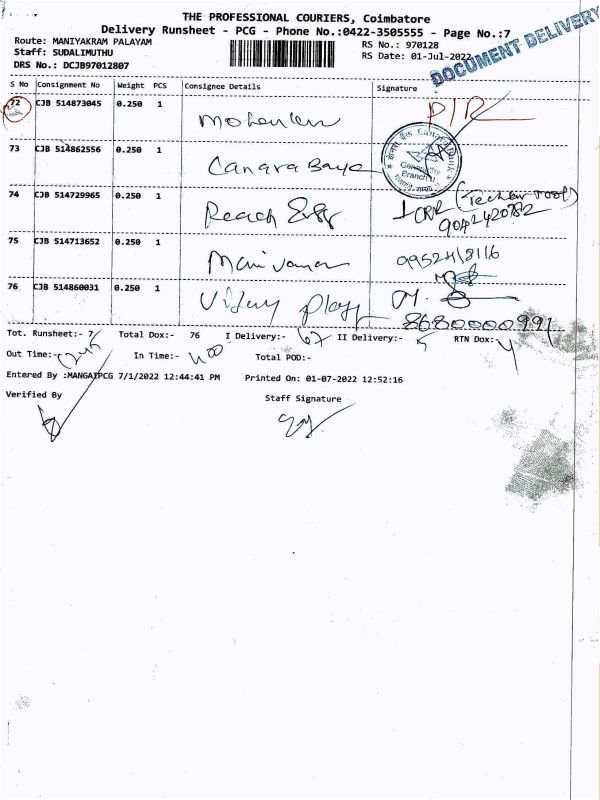 THE PROFESSIONAL COURIERS, Coimbatore
Delivery Runsheet - PCG - Phone No.:0422-3505555 - Page No.:7
Route: MANIYAKRAM PALAYAM
RS No.: 970128
Staff: SUDALIMUTHU
RS Date: 01-Jul-2022
DRS No.: DCJB97012807
DOCUMENT DELIVERY
S No Consignment No Weight PCS Consignee Details Signature
72 CJB 514873045 0.250 1
73 CJB 514862556 0.250 1 Canara
Canara Bank
Ganapathy
Branch II
74 CJB 514729965 0.250 1 Reach
9042420782
75 CJB 514713652 0.250 1
76 CJB 514860031 0.250 1 Vijay
8680000991
Tot. Runsheet:- 7 Total Dox:- 76 I Delivery:- 67 II Delivery:- 5 RTN Dox:- 4
Out Time:- In Time:- Total POD:-
Entered By :MANGAIPCG 7/1/2022 12:44:41 PM Printed On: 01-07-2022 12:52:16
Verified By Staff Signature